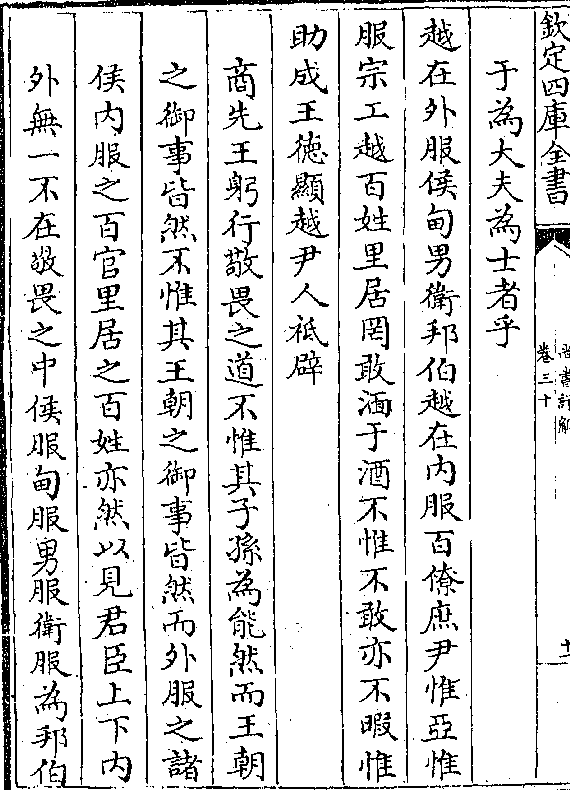 欽定四庫全書
尚書詳解
卷三十
十一
于為大夫為士者乎
越在外服侯甸男衛邦伯越在內服百僚庶尹惟亞惟
服宗工越百姓里居罔敢湎于酒不惟不敢亦不暇惟
助成王德顯越尹人祗辟
商先王躬行敬畏之道不惟其子孫為能然而王朝
之御事皆然不惟其王朝之御事皆然而外服之諸
侯内服之百官里居之百姓亦然以見君臣上下内
外無一不在敬畏之中侯服甸服男服衛服為邦伯